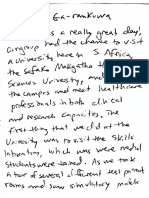 Ga-rankuwa
is a really great day,
Our group had the chance to visit
a University here in S. Africa,
the Sefako Makgatho Health
Sciences University, and
the campus and meet healthcare
professionals in both clinical
and research capacities. The
first thing that we did at the
University was visit the skills
laboratory, which was were medical
students were trained. As we took
a tour of several different test patient
rooms and saw simulatory models